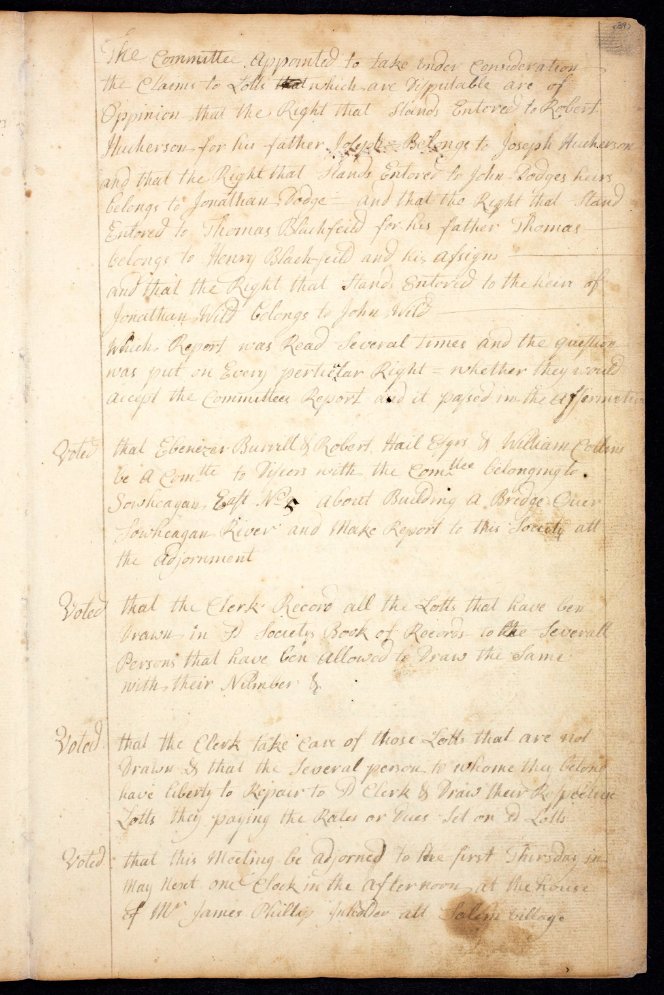 The Committee Appointed to take under Consideration
the Claims to Lotts that which are Disputable are of
Oppinion that the Right that Stands Entored to Robert
Hucherson for his father Joseph Belongs to Joseph Hucherson
and that the Right that Stands Entored to John Dodges heirs
belongs to Jonathan Dodge = and that the Right that Stand
Entored to Thomas Blachfeild for his father Thomas
belongs to Henry Blachfeild and his assigns
and that the Right that Stand Entored to the heirs of
Jonathan Wild belongs to John Wild
Which Report was Read Several Times and the question
was put on Every perticular Right = whether they would
accept the Committees Report and it pased in the affermative
Voted that Ebenezer Burrill & Robert Hail Esqrs & William Collins
be A Comtte to Discors with the Comttee belonging to
Sowheagan East No 5 About Building A Bredge Over
Sowheagan River and Make Report to this Society att
the adjornment
Voted that the Clerk Record all the Lotts that have ben
Drawn in sd Societys Book of Records to the Severall
Persons that have ben allowed to Draw the Same
with their Number &
Voted that the Clerk take Care of those Lotts that are not
Drawn & that the Several person to whome they belong
have liberty to Repair to sd Clerk & Draw their Respective
Lotts they paying the Rates or Dues Set on sd Lotts
Voted that this Meeting be adjorned to the first Thursday in
May Next one Clock in the afternoon at the house
of Mr James Phillips Inholder att Salem village